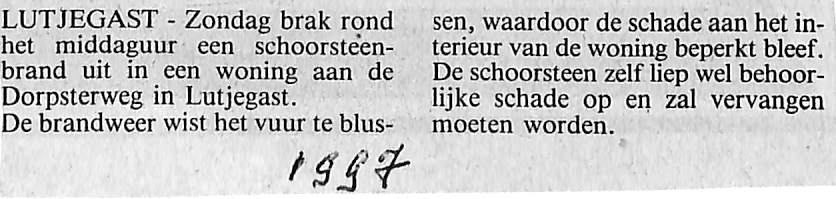 LUTJEGAST - Zondag brak rond
het middaguur een schoorsteen-
brand uit in een woning aan de
Dorpsterweg in Lutjegast.
De brandweer wist het vuur te blus-
sen, waardoor de schade aan het in-
terieur van de woning beperkt bleef.
De schoorsteen zelf liep wel behoor-
lijke schade op en zal vervangen
moeten worden.
1997